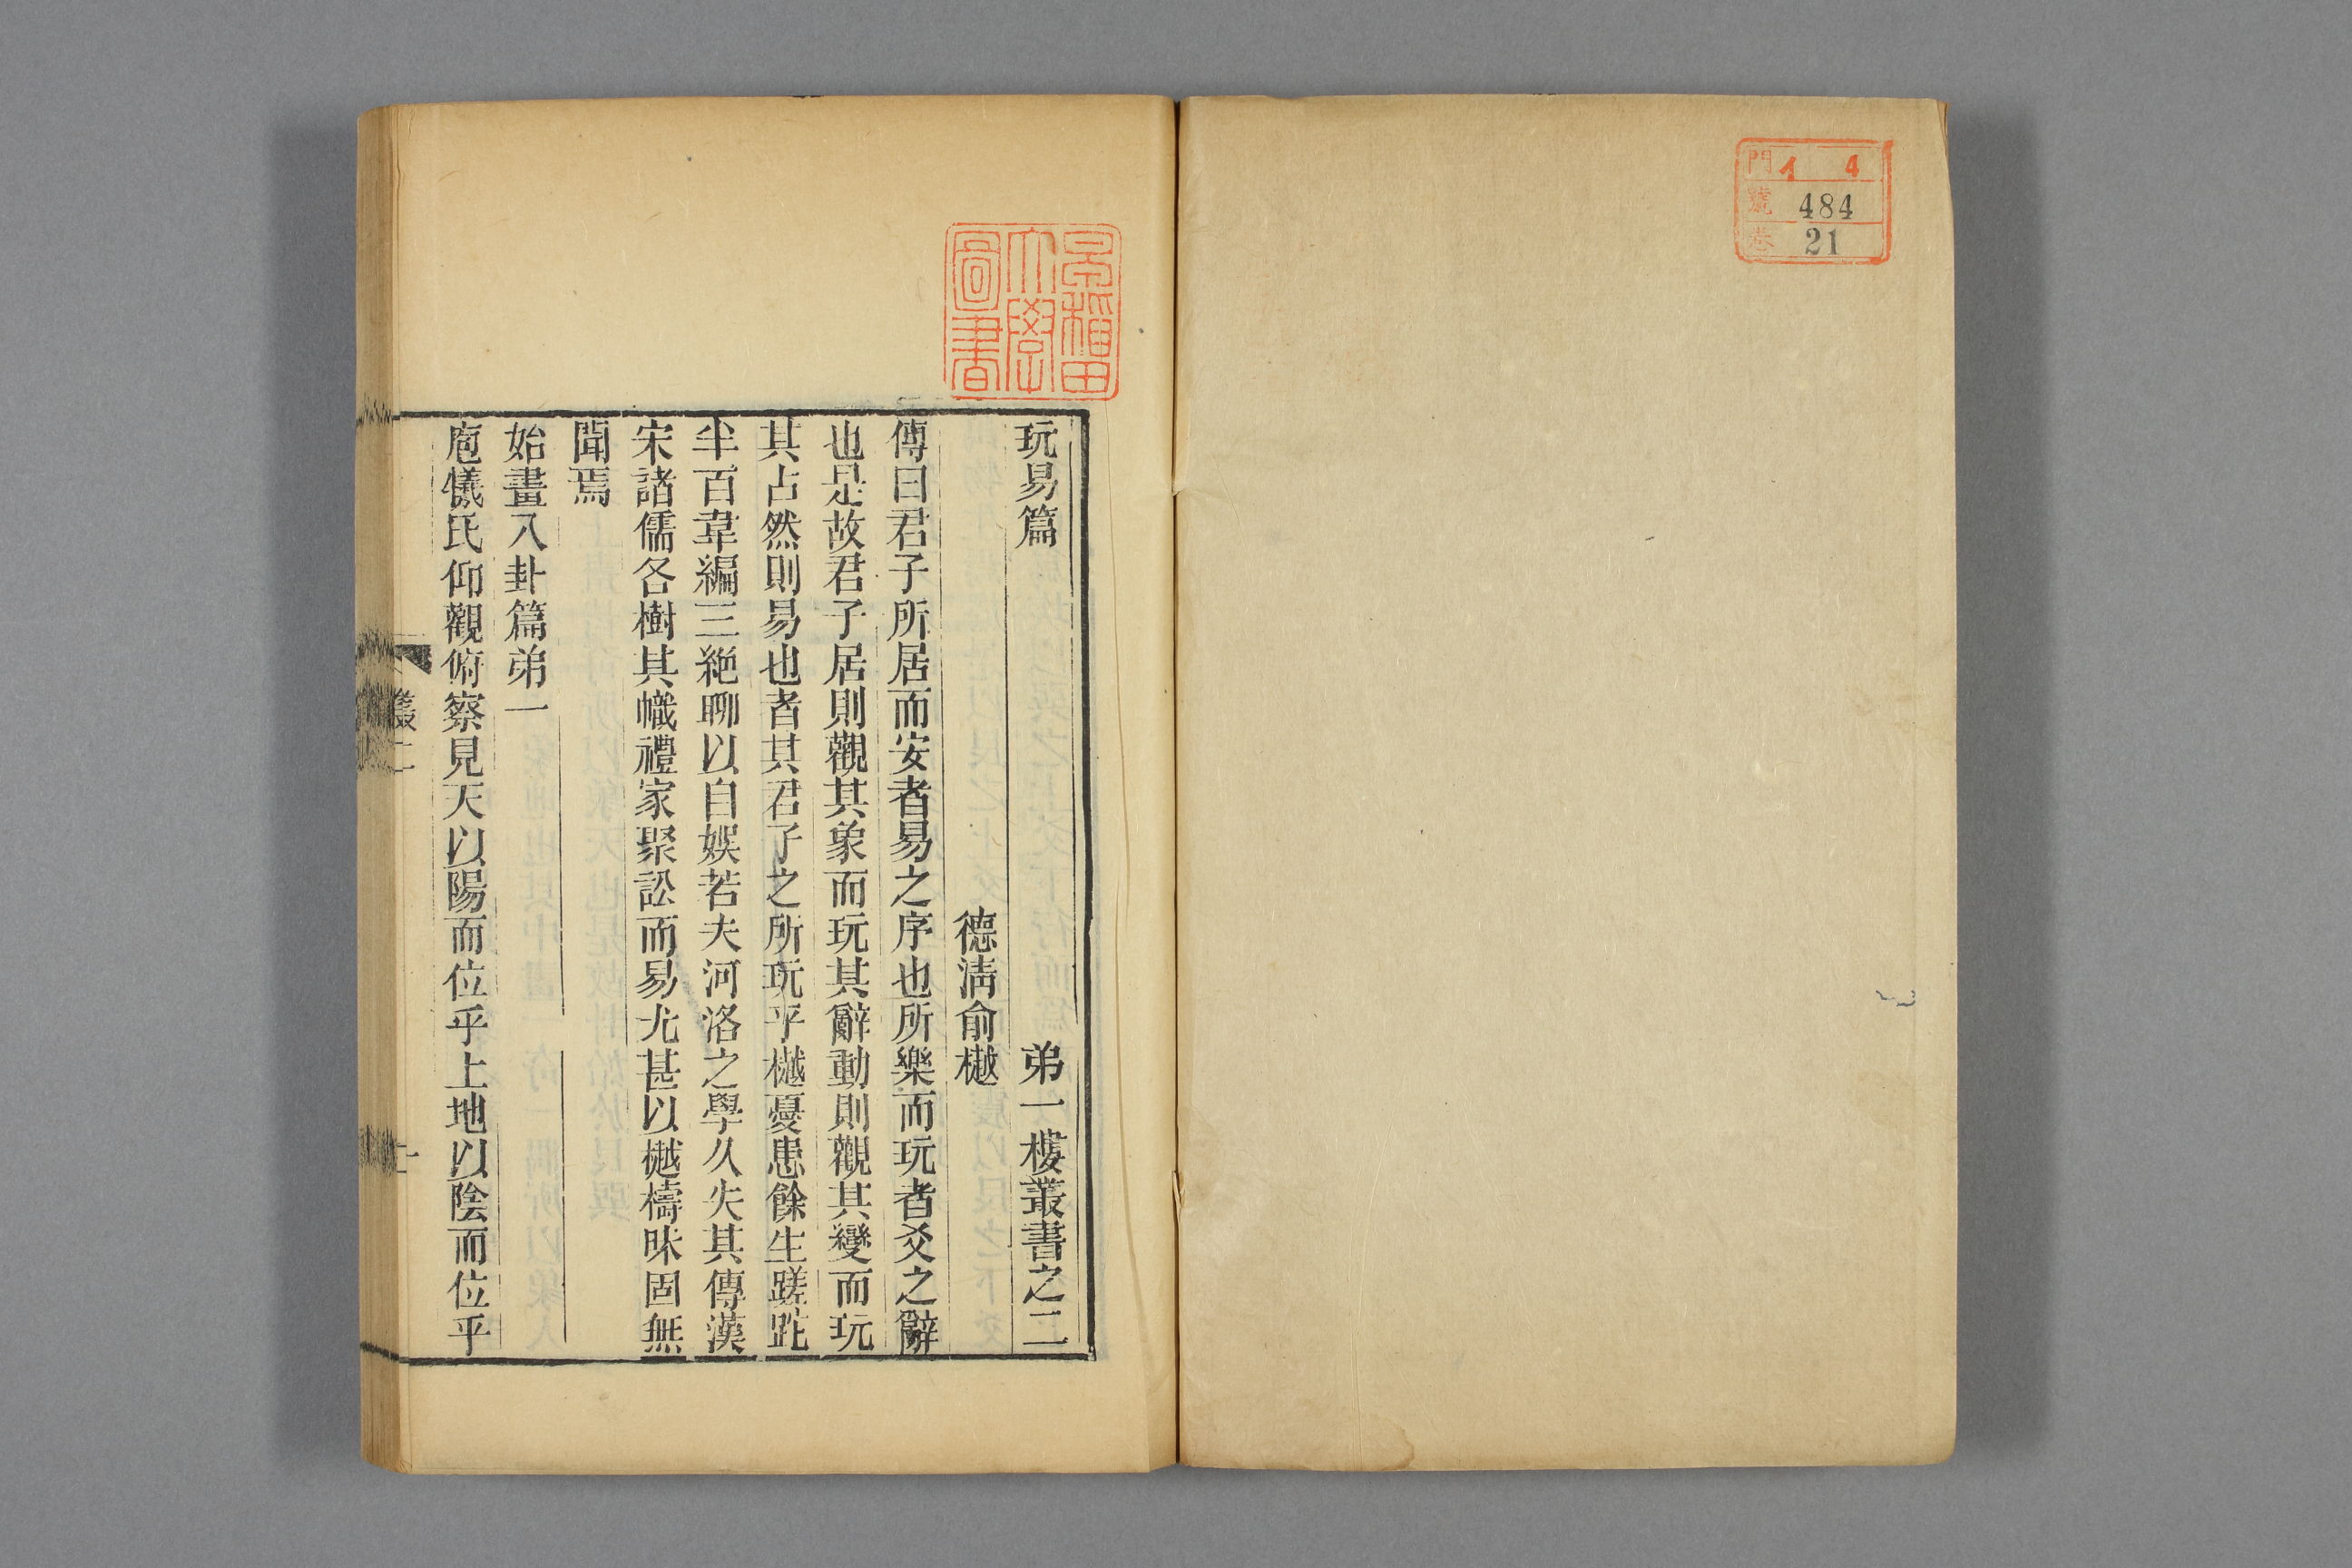 門 イ 4
號 484
卷 21
早稻田
大學
圖書
玩易篇 弟一樓叢書之二
德淸俞樾
傳曰君子所居而安者易之序也所樂而玩者爻之辭
也是故君子居則觀其象而玩其辭動則觀其變而玩
其占然則易也者其君子之所玩乎樾憂患餘生蹉跎
半百韋編三絶聊以自娛若夫河洛之學久失其傳漢
宋諸儒各樹其幟禮家聚訟而易尤甚以樾檮昧固無
聞焉
始畫八卦篇弟一
庖犧氏仰觀俯察見天以陽而位乎上地以陰而位乎
叢二